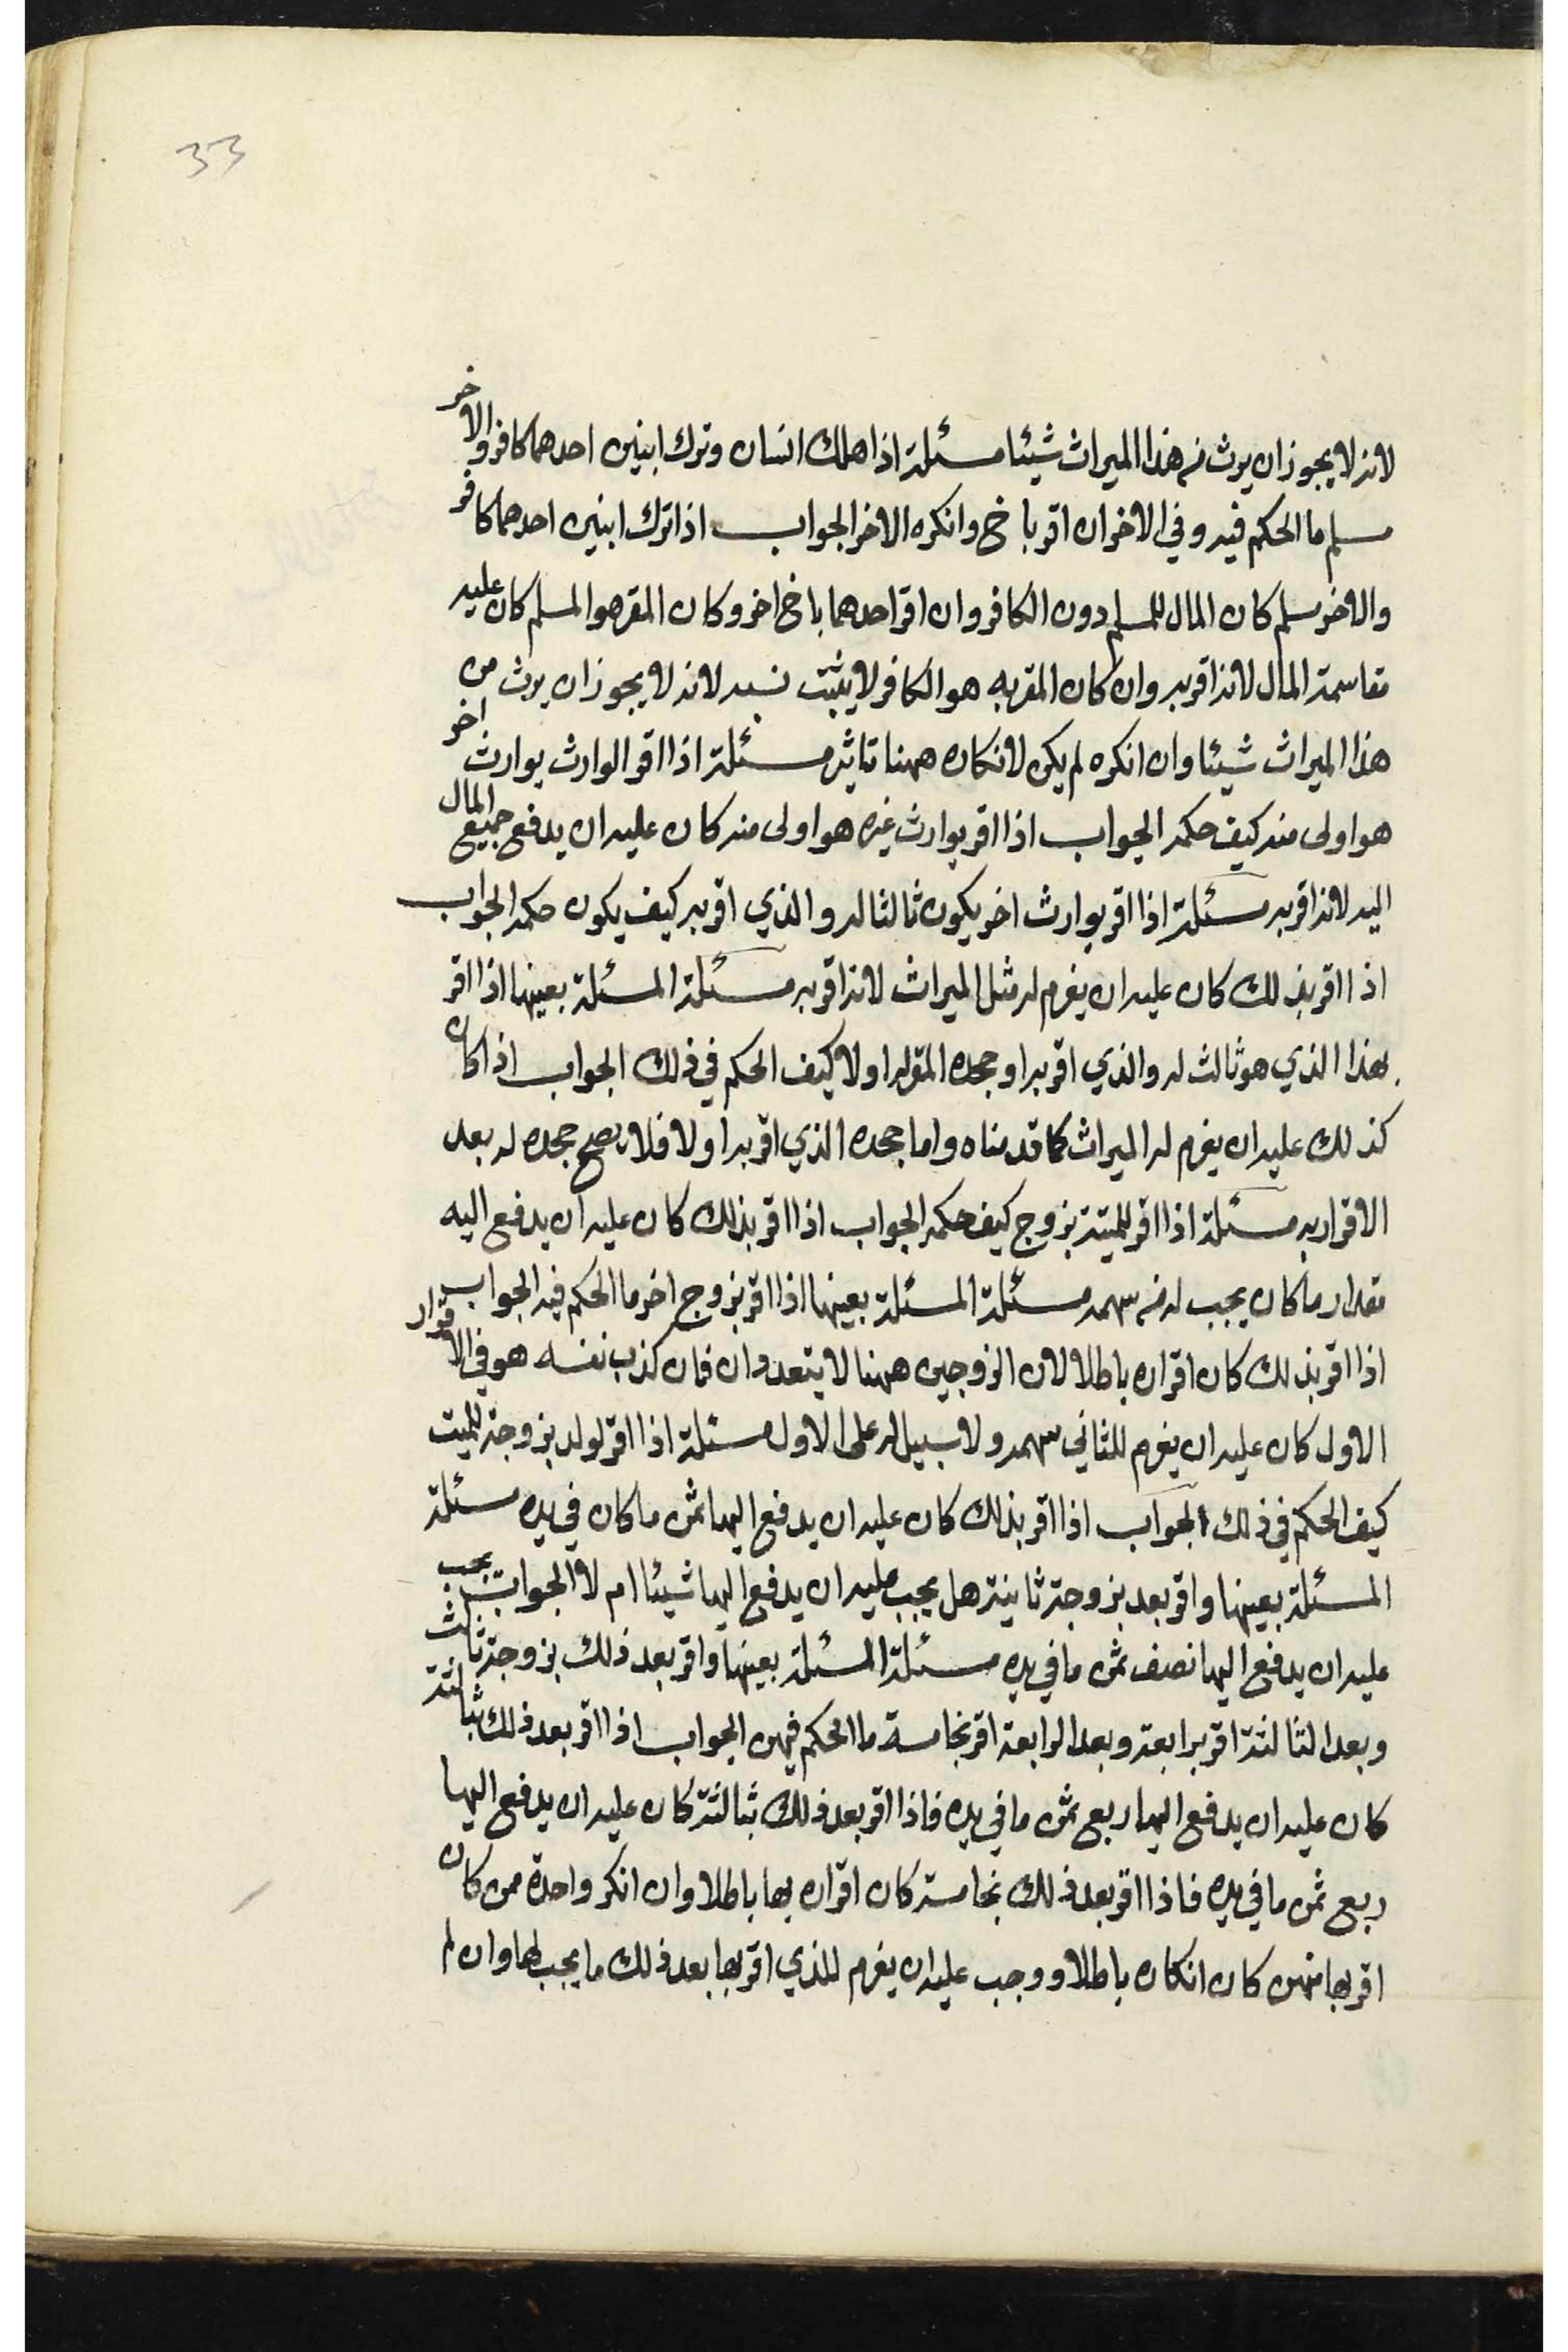 33
لانه لا يجوز ان يرث من هذا الميراث شيئا مسئلة اذا هلك انسان وترك ابنين احدهما كافر والاخر
مسلم ما الحكم فيه وفي الاخر ان اقر باخ وانكره الاخر الجواب اذا ترك ابنين احدهما كافر
والاخر مسلم كان المال للمسلم دون الكافر وان اقر احدهما باخ اخر وكان المقر هو المسلم كان عليه
مقاسمة المال لانه اقر به وان كان المقر به هو الكافر لا يثبت نسبه لانه لا يجوز ان يرث من
هذا الميراث شيئا وان انكره لم يكن لانكاره ههنا تاثير مسئلة اذا اقر الوارث بوارث اخر
هو اولى منه كيف حكمه الجواب اذا اقر بوارث غيره هو اولى منه كان عليه ان يدفع جميع المال
اليه لانه اقر به مسئلة اذا اقر بوارث اخر يكون ثالثا له والذي اقر به كيف يكون حكمه الجواب
اذا اقر بذلك كان عليه ان يغرم له مثل الميراث لانه اقر به مسئلة المسئلة بعينها اذا اقر
بهذا الذي هو ثالث له والذي اقر به او جحده المقر له اولا كيف الحكم في ذلك الجواب اذا كان
كذلك عليه ان يغرم له الميراث كما قدمناه واما جحده الذي اقر به اولا فلا يصح جحده له بعد
الاقرار به مسئلة اذا اقر للميتة بزوج كيف حكمه الجواب اذا اقر بذلك كان عليه ان يدفع اليه
مقدار ما كان يجب له من سهمه مسئلة المسئلة بعينها اذا اقر بزوج اخر ما الحكم فيه الجواب
اذا اقر بذلك كان اقراره باطلا لان الزوجين ههنا لا يتعددان فان كذب نفسه هو في الاقرار
الاول كان عليه ان يغرم للثاني سهمه ولا سبيل له على الاول مسئلة اذا اقر لولد بزوجة للميت
كيف الحكم في ذلك الجواب اذا اقر بذلك كان عليه ان يدفع اليها ثمن ما كان في يده مسئلة
المسئلة بعينها واقر بعد بزوجة ثانية هل يجب عليه ان يدفع اليها شيئا ام لا الجواب يجب
عليه ان يدفع اليها نصف ثمن ما في يده مسئلة المسئلة بعينها واقر بعد ذلك بزوجة ثالث
وبعد الثالثة اقر برابعة وبعد الرابعة اقر بخامسة ما الحكم فيهن الجواب اذا اقر بعد ذلك بثالثة
كان عليه ان يدفع اليها ربع ثمن ما في يده فاذا اقر بعد ذلك بثالثة كان عليه ان يدفع اليها
ربع ثمن ما في يده فاذا اقر بعد ذلك بخامسة كان اقراره بها باطلا وان انكر واحدة ممن كان
اقر بها منهن كان انكاره باطلا ووجب عليه ان يغرم للذي اقر بها بعد ذلك ما يجب لها وان لم